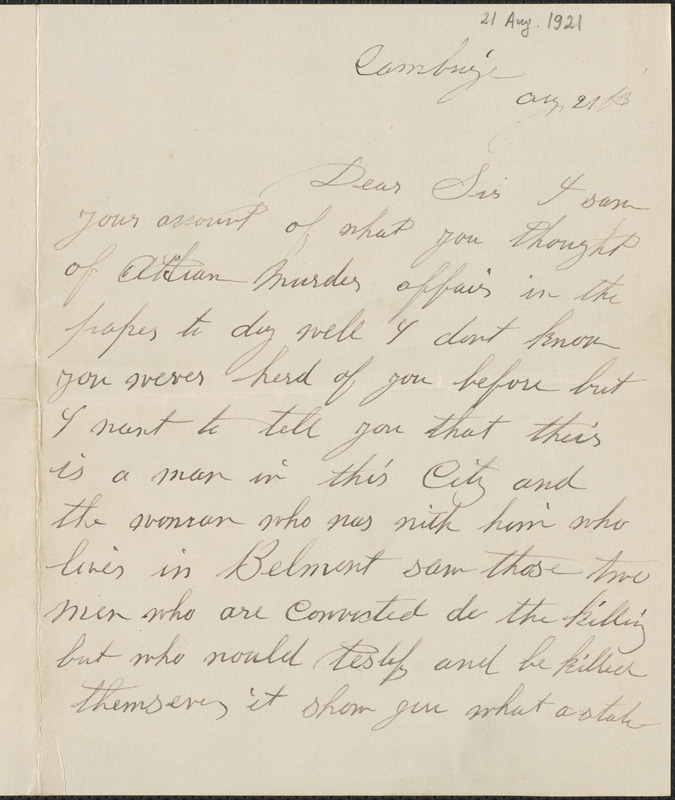 21 Aug. 1921
Cambrige
Aug 21st
Dear Sir I saw
your account of what you thought
of Italian Murder affair in the
paper to day well I dont know
you never herd of you before but
I want to tell you that theis
is a man in this City and
the woman who was with him who
lives in Belmont saw those two
men who are convicted do the killing
but who would testify and be killed
themserves it show you what a state